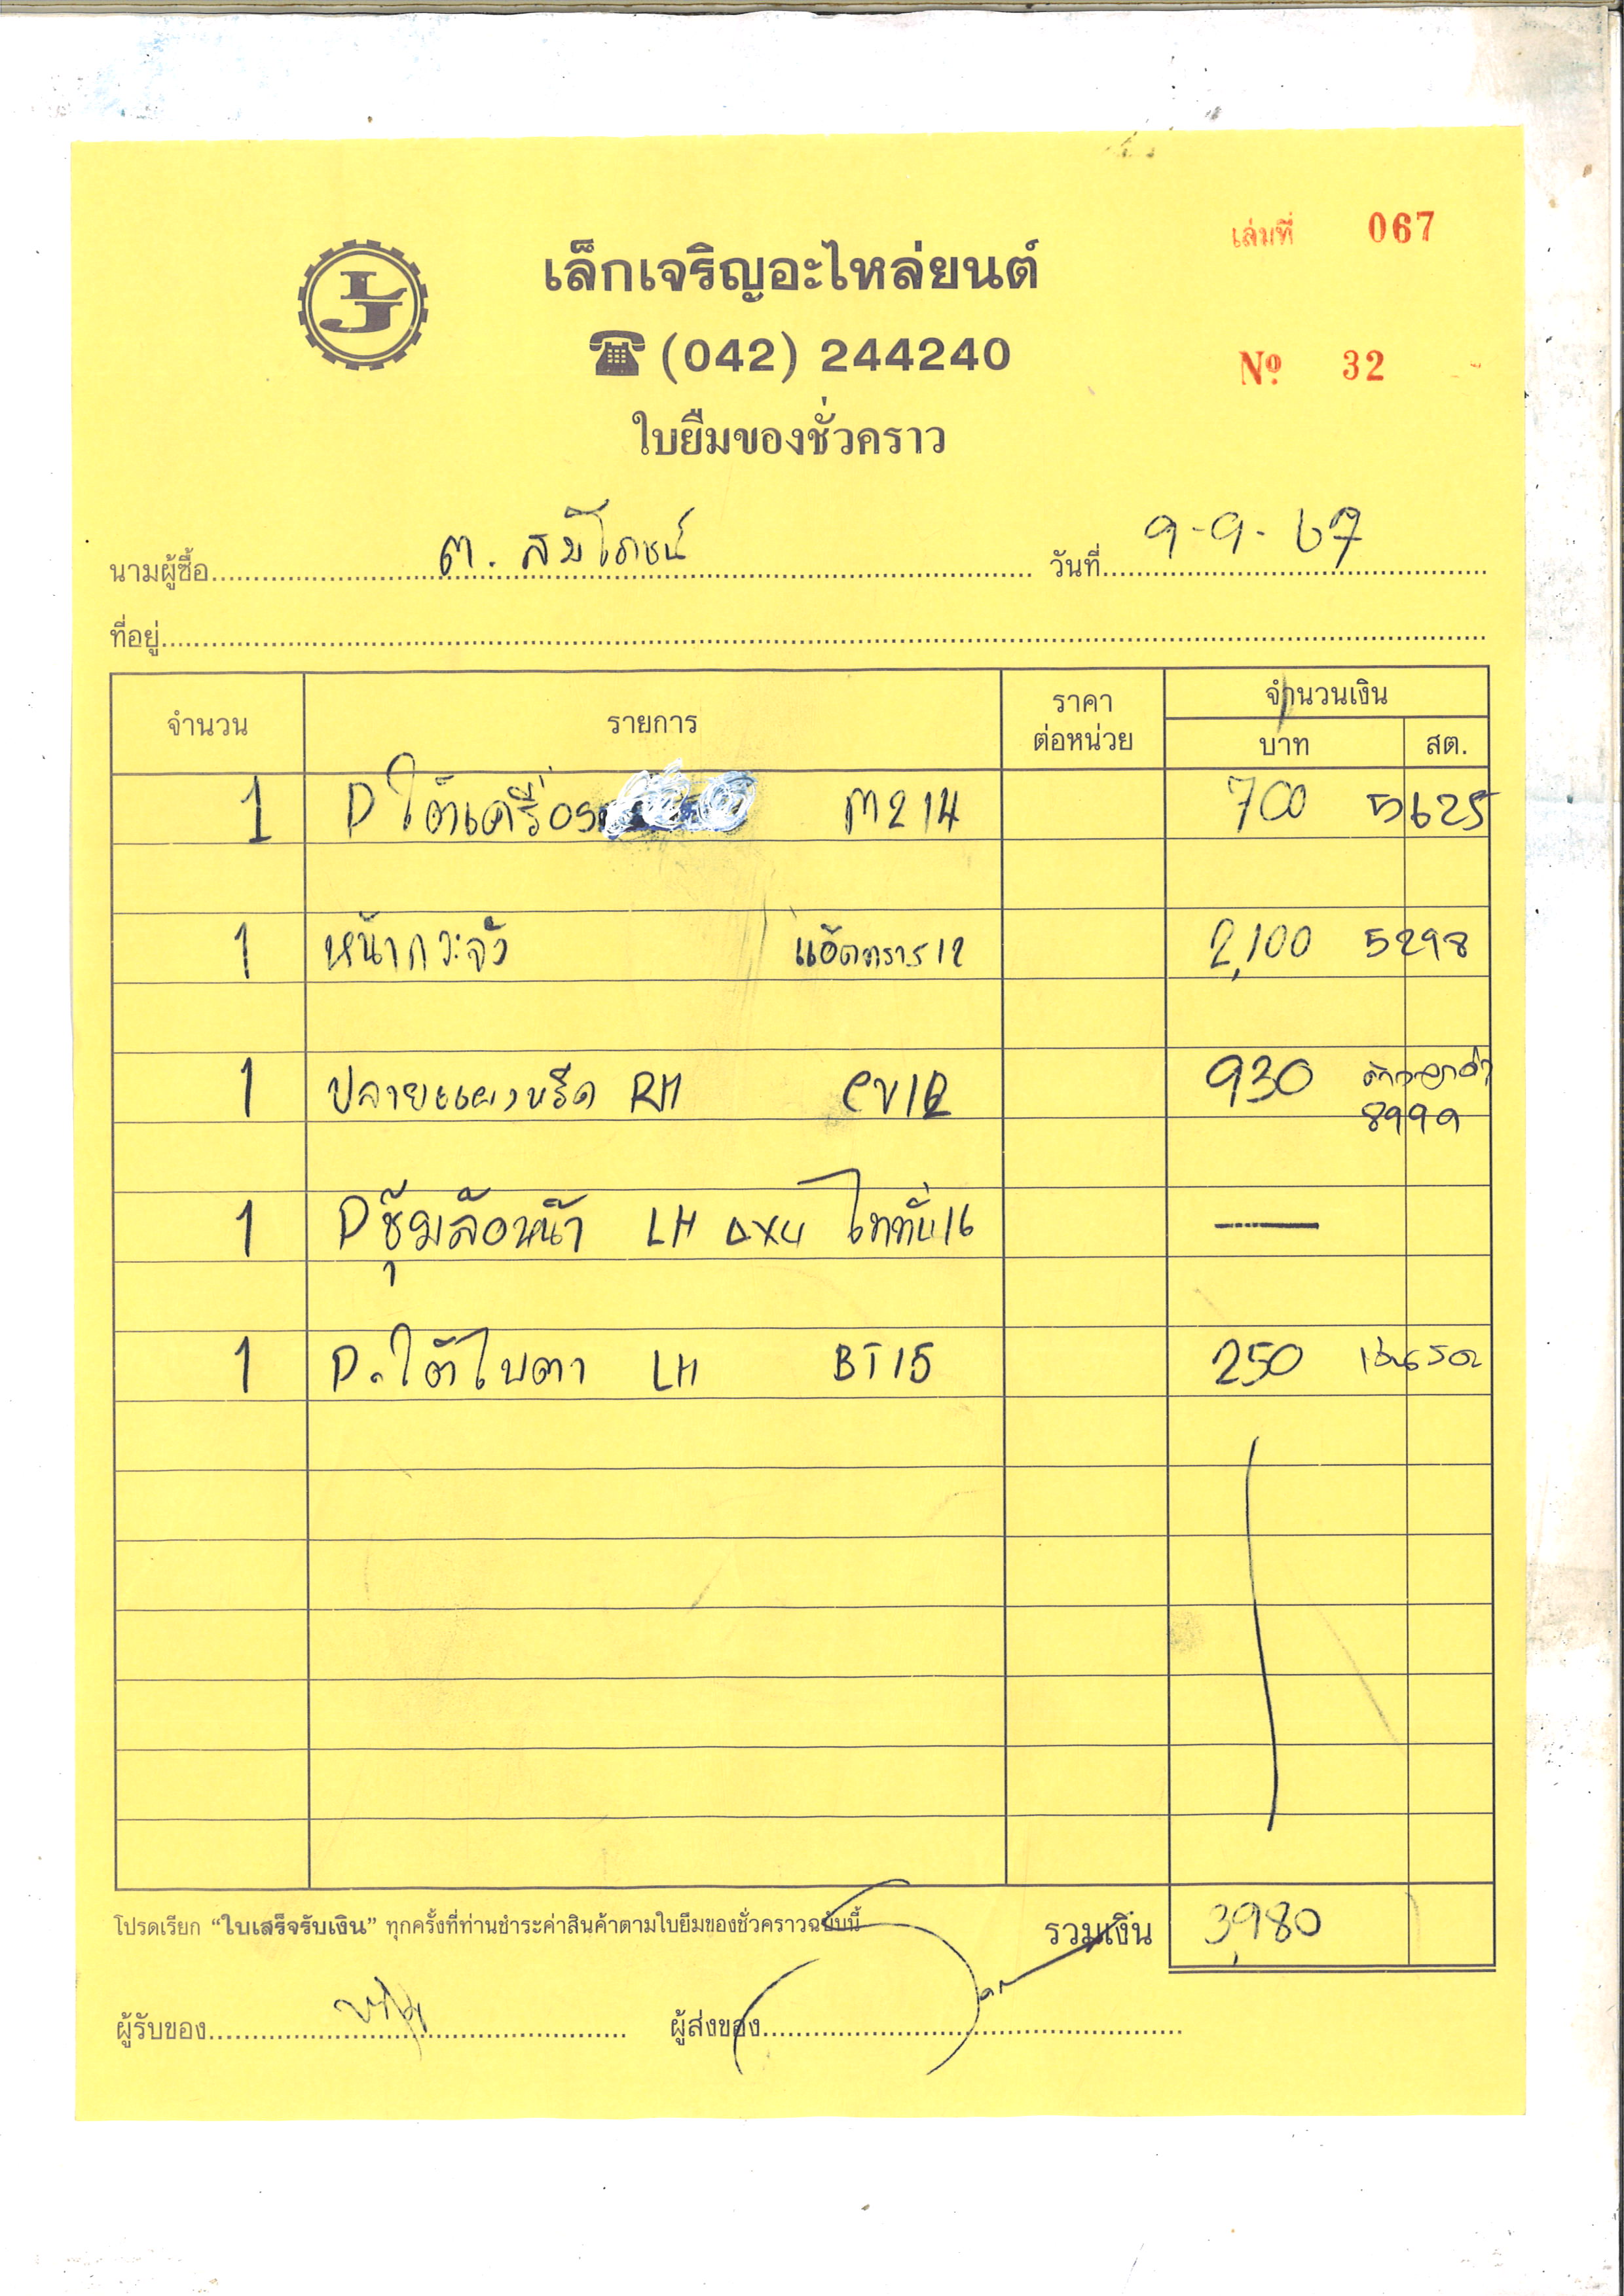 เล่มที่ 067
LJ
เล็กเจริญอะไหล่ยนต์
☎ (042) 244240
Nº 32
ใบยืมของชั่วคราว
นามผู้ซื้อ ต. สมโภชน์ วันที่ 9-9-67
ที่อยู่
จำนวน รายการ ราคาต่อหน่วย จำนวนเงิน
บาท สต.
1 P ใต้เครื่อง M214 700 5625
1 หน้ากระจัง แอ๊ดทราจ12 2,100 5298
1 ปลายแผงหรีด RH CV12 930
8999
1 Pซุ้มล้อหน้า LH 4x4 ไททั่น16 —
1 P.ใต้ไฟตา LH BT15 250
โปรดเรียก “ใบเสร็จรับเงิน” ทุกครั้งที่ท่านชำระค่าสินค้าตามใบยืมของชั่วคราวฉบับนี้
รวมเงิน 3,980
ผู้รับของ ผู้ส่งของ